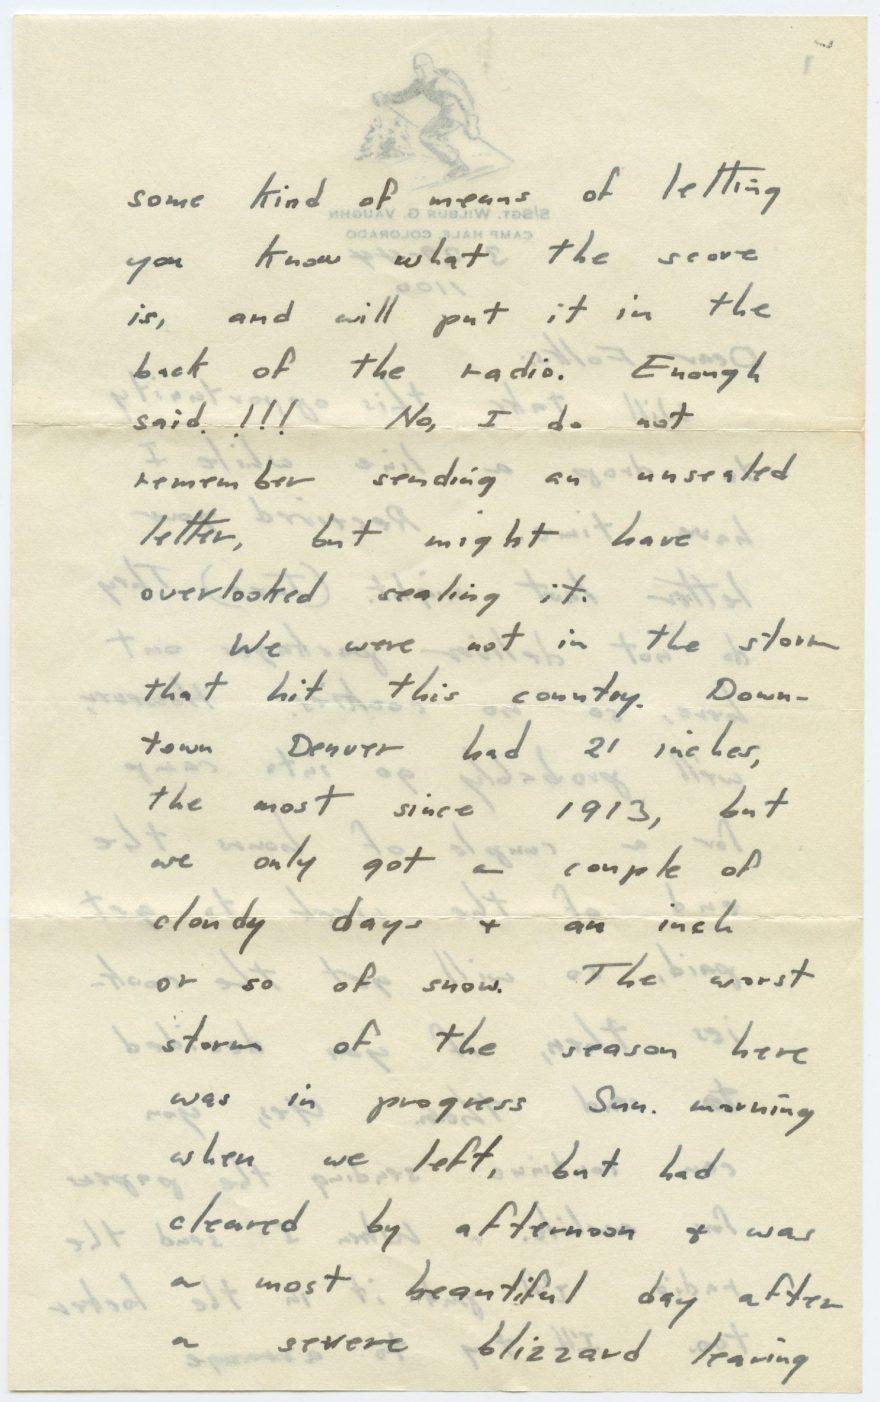 some kind of means of letting
you know what the score
is, and will put it in the
back of the radio. Enough
said. !!! No, I do not
remember sending an unsealed
letter, but might have
overlooked sealing it.
We were not in the storm
that hit this country. Down-
town Denver had 21 inches,
the most since 1913, but
we only got a couple of
cloudy days + an inch
or so of snow. The worst
storm of the season here
was in progress Sun. morning
when we left, but had
cleared by afternoon + was
a most beautiful day after
a severe blizzard leaving